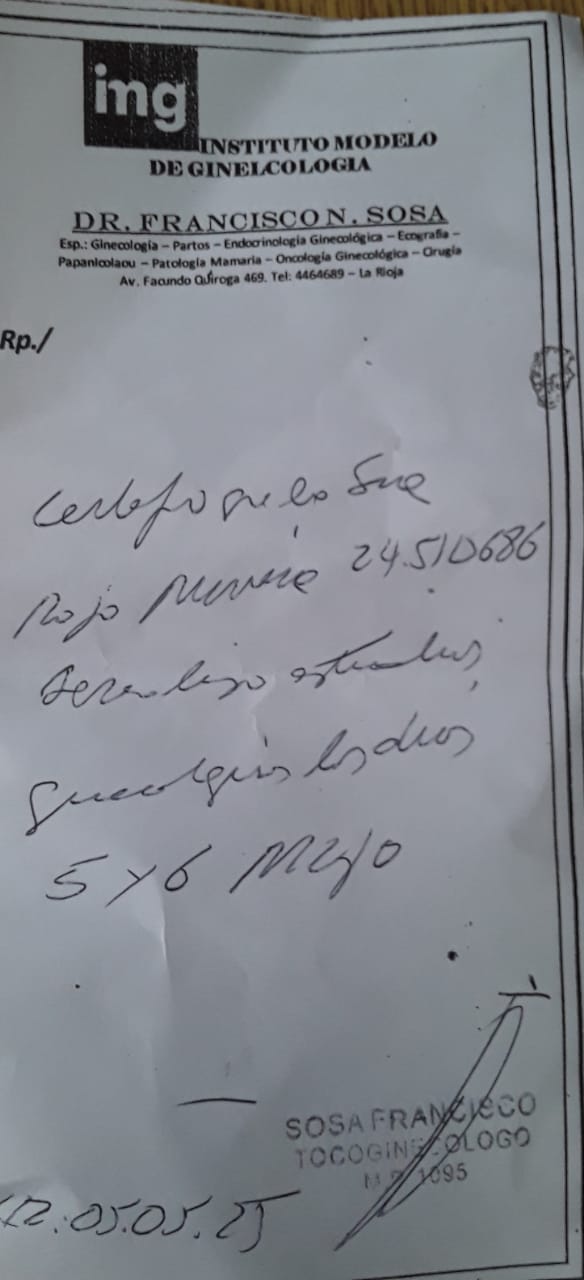 img
INSTITUTO MODELO
DE GINELCOLOGIA
DR. FRANCISCO N. SOSA
Esp.: Ginecología – Partos – Endocrinología Ginecológica – Ecografía –
Papanicolaou – Patología Mamaria – Oncología Ginecológica – Cirugía
Av. Facundo Quiroga 469. Tel: 4464689 – La Rioja
Rp./
Certifico que la Sra
Rojo 24.510686
se realizo estudios
ginecologicos los dias
5 y 6 Mayo
SOSA FRANCISCO
TOCOGINECOLOGO
M P 1095
05.05.25